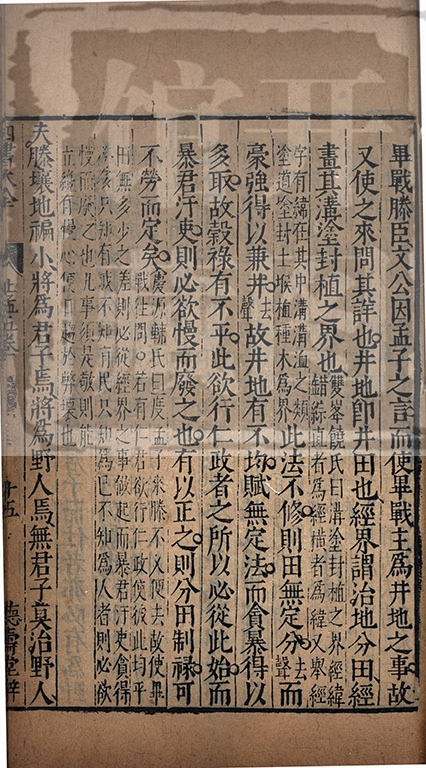 畢戰滕臣文公因孟子之言而使畢戰主爲井地之事故
又使之來問其詳也井地即井田也經界謂治地分田經
畫其溝塗封植之界也雙峯饒氏曰溝塗封植之界經緯錯綜直者爲經橫者爲緯又舉經
字有緯在其中溝溝洫之類塗道塗封土堠植種木爲界此法不修則田無定分去聲而
豪強得以兼并去聲故井地有不均賦無定法而貪暴得以
多取故穀祿有不平此欲行仁政者之所以必從此始而
暴君汙吏則必欲慢而廢之也有以正之則分田制祿可
不勞而定矣慶源輔氏曰孟子來滕不久便去故使畢戰往問若有仁君欲行仁政使彼此均平
田無多少之差則必從經界之事做起而暴君汙吏貪得
只知爲己不知爲人者則必欲
慢而廢之也凡事須是敬則能立
夫滕壤地褊小將爲君子焉將爲野人焉無君子莫治野人
四書大全
德壽堂梓